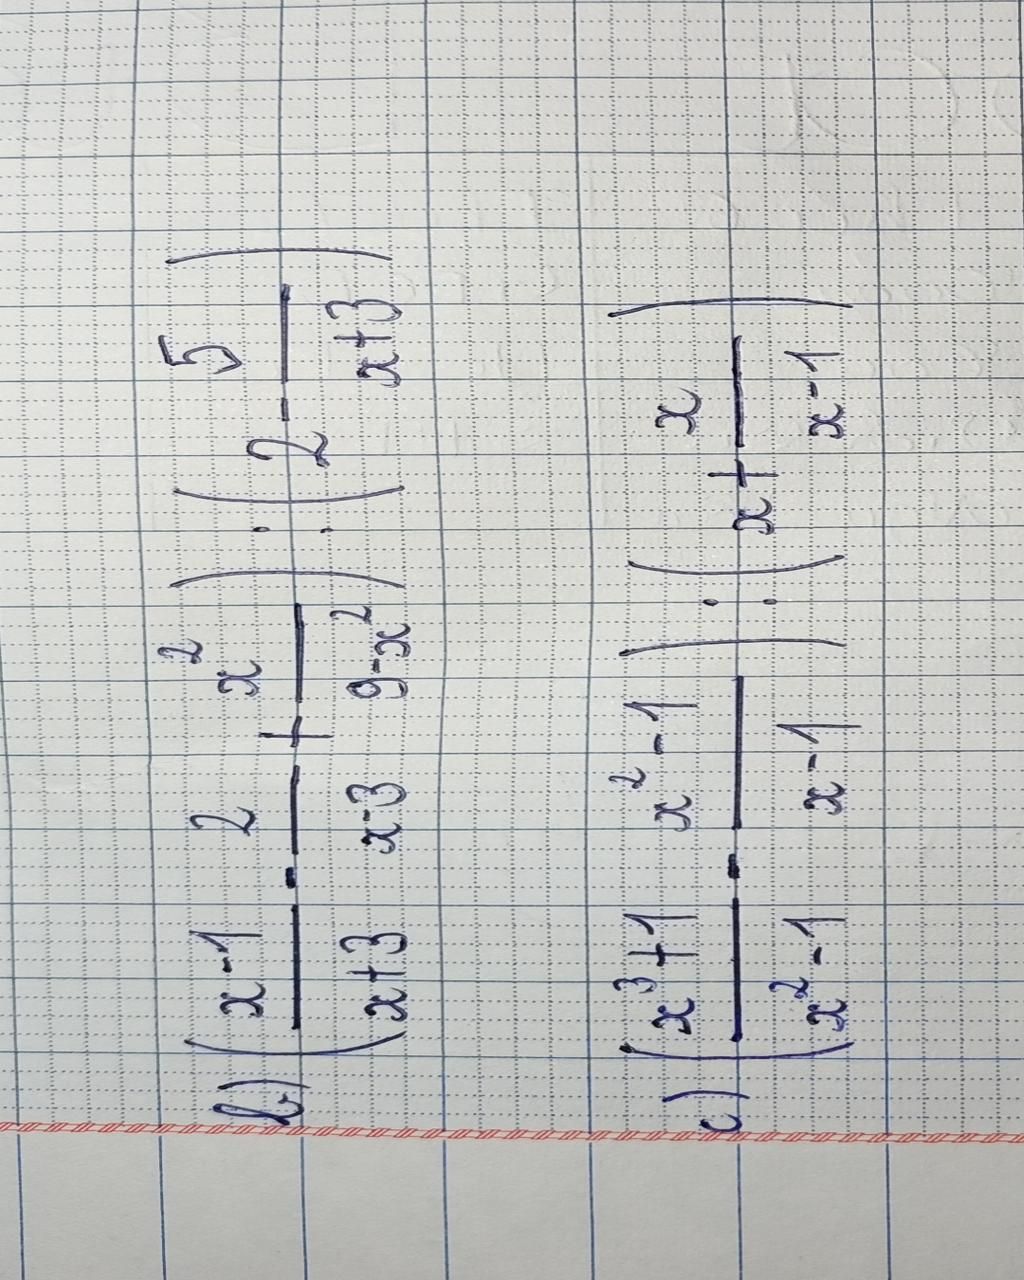 b) ( \frac{x-1}{x+3} - \frac{2}{x-3} + \frac{x^2}{9-x^2} ) : ( 2 - \frac{5}{x+3} )
c) ( \frac{x^3+1}{x^2-1} - \frac{x^2-1}{x-1} ) : ( x + \frac{x}{x-1} )